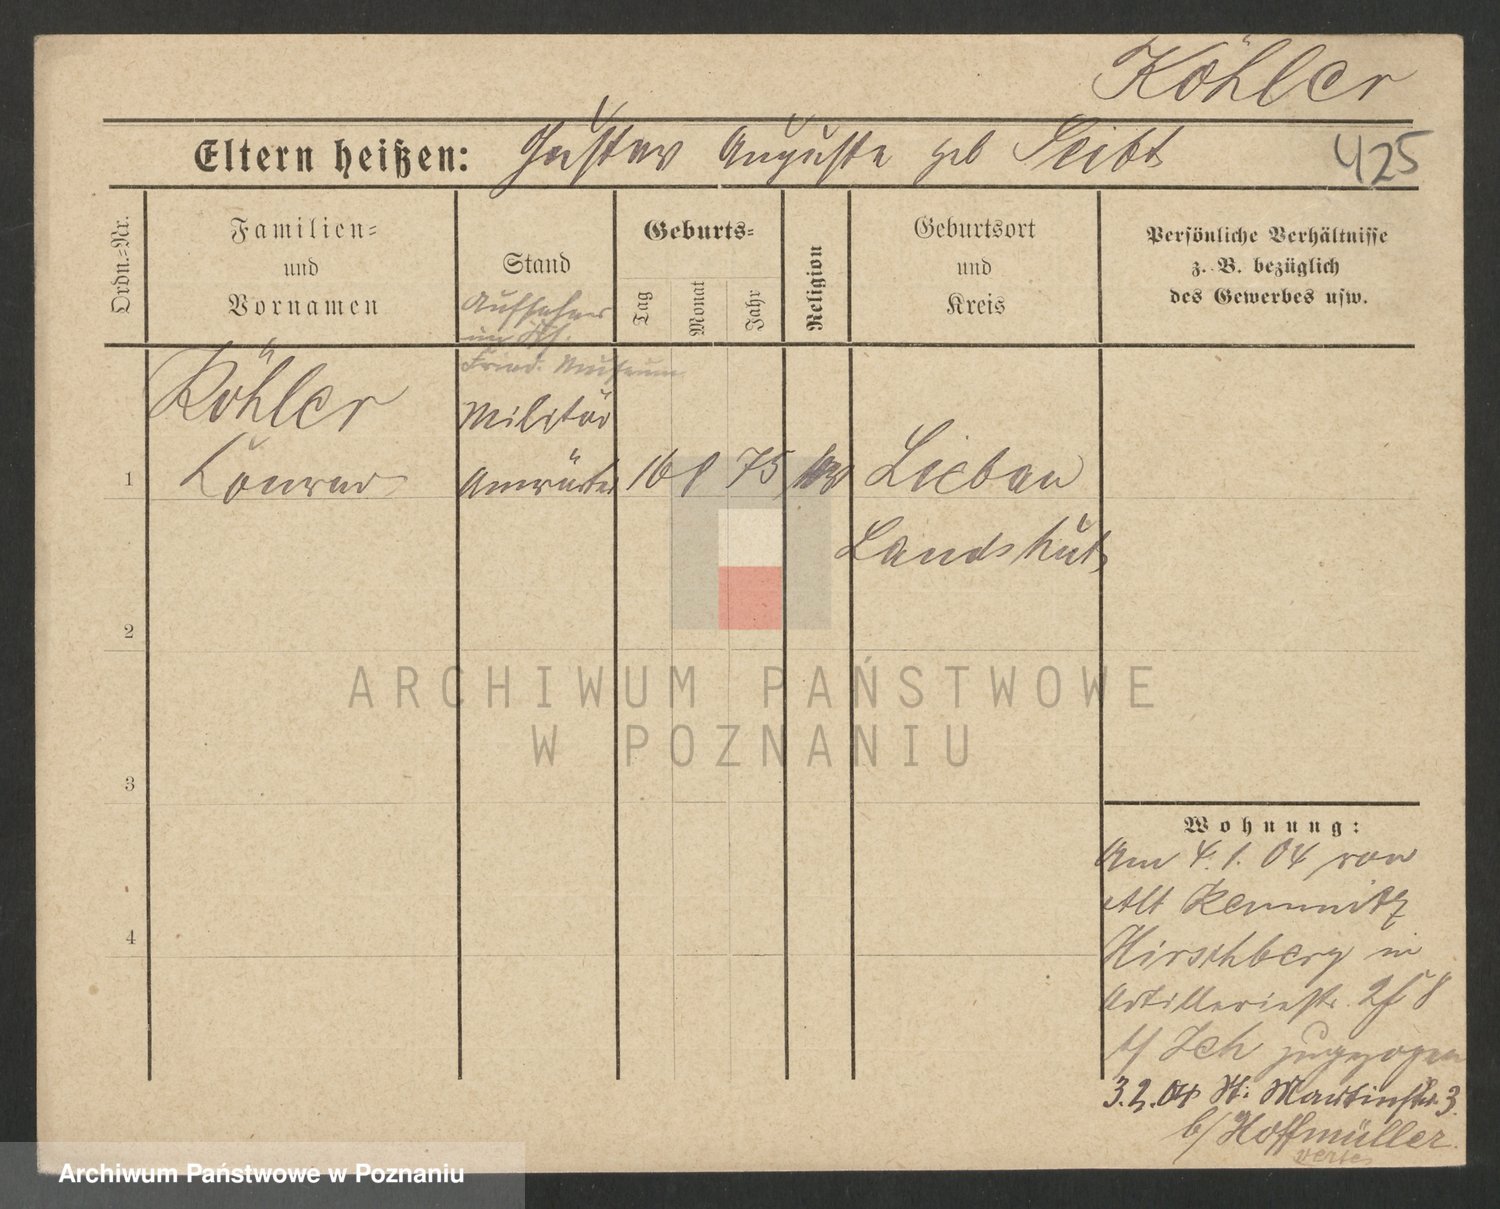 Köhler
Eltern heißen: Gustav Auguste geb Seibt
425
Ordn.-Nr.
Familien-
und
Vornamen
Stand
Geburts-
Tag
Monat
Jahr
Religion
Geburtsort
und
Kreis
Persönliche Verhältnisse
z. B. bezüglich
des Gewerbes usw.
Aufseher
im
Fried. Museum
Köhler
Militär
1
Konrad
Anwärter
16
75
Liebau
Landshut
2
ARCHIWUM PAŃSTWOWE
W POZNANIU
3
Wohnung:
Am 4. 1. 04 von
Alt Kemnitz
Hirschberg in
Artilleriestr. 2
b/ zugezogen
3.2.04 St: Martinstr. 3.
b/ Hoffmüller.
4
Archiwum Państwowe w Poznaniu